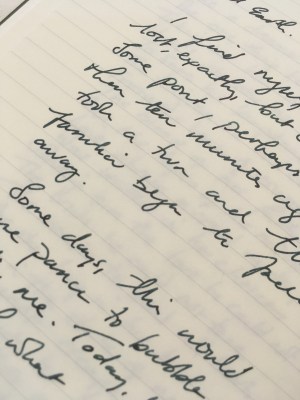 Earth.
I find myse
lost, exactly, but
Some point, perhaps
then ten minutes ag
took a turn and th
familiar began to fee
away.
Some days, this would
panic to bubble
me. Today,
what